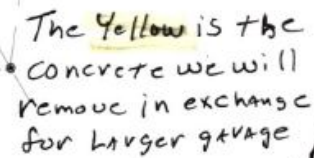 The Yellow is the
concrete we will
remove in exchange
for Larger garage